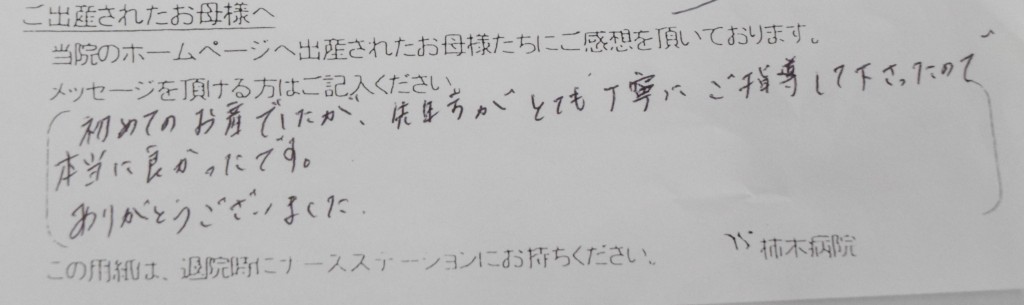 ご出産されたお母様へ
当院のホームページへ出産されたお母様たちにご感想を頂いております。
メッセージを頂ける方はご記入ください。
初めてのお産でしたが、先生方がとても丁寧にご指導して下さったので
本当に良かったです。
ありがとうございました.
この用紙は、退院時にナースステーションにお持ちください。
柿木病院